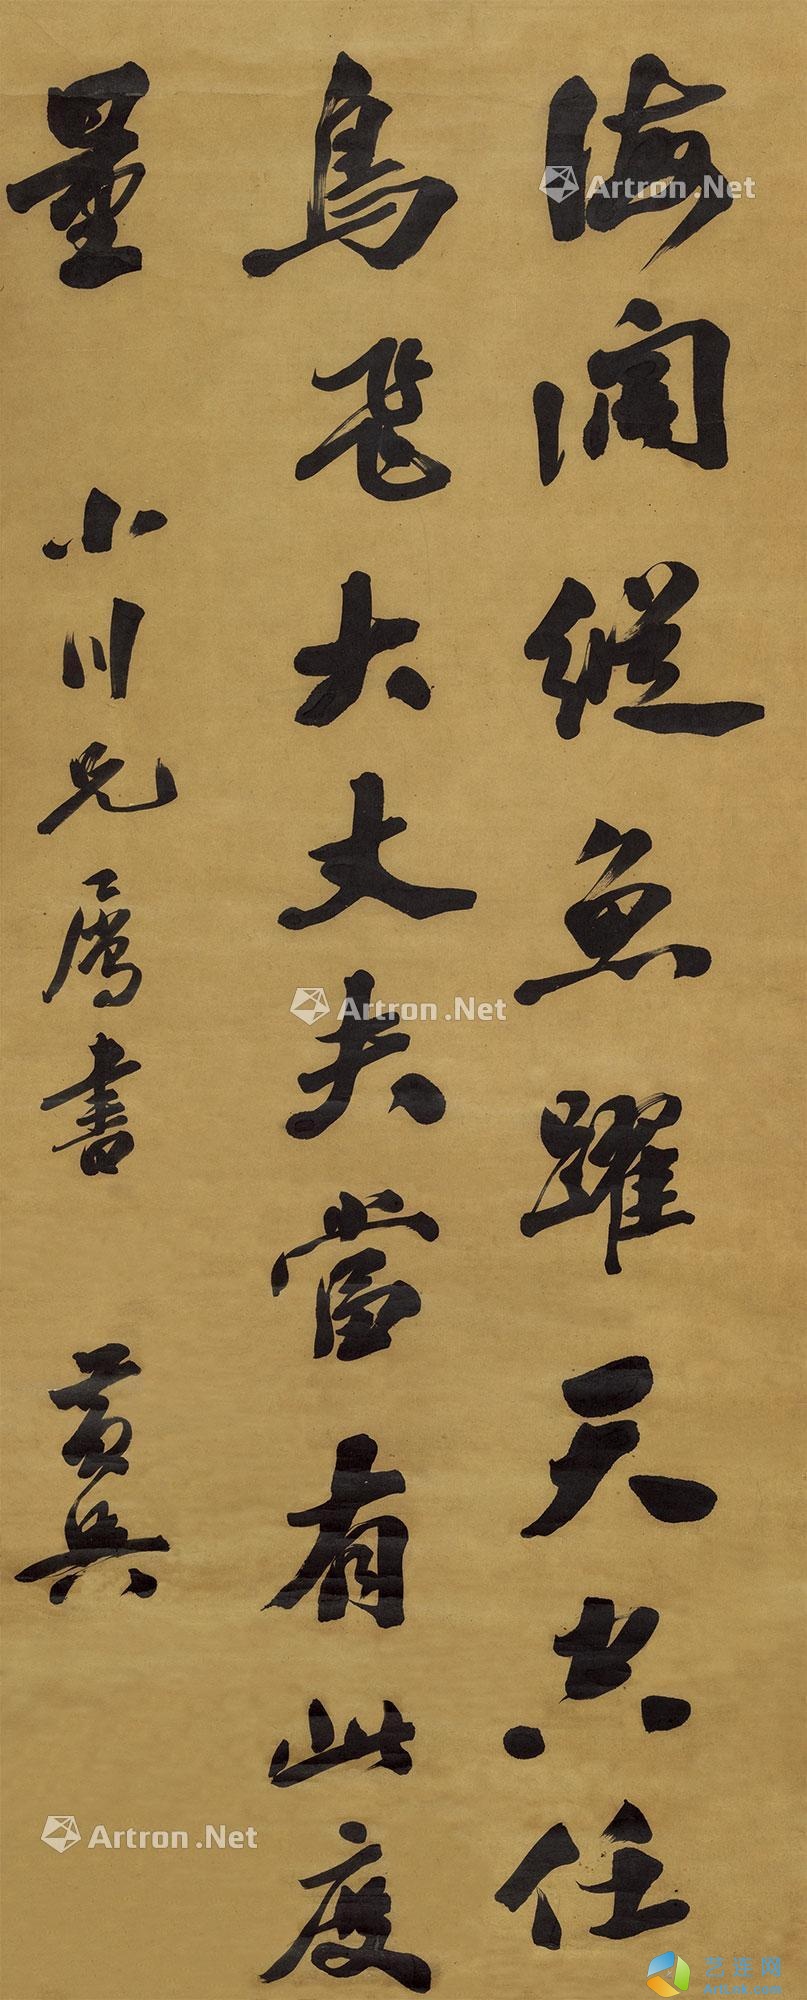 海阔縱魚躍天空任
鳥飛大丈夫當有此度
量
小川兄属書
黃興
Artron.Net
Artron.Net
Artron.Net
艺连网